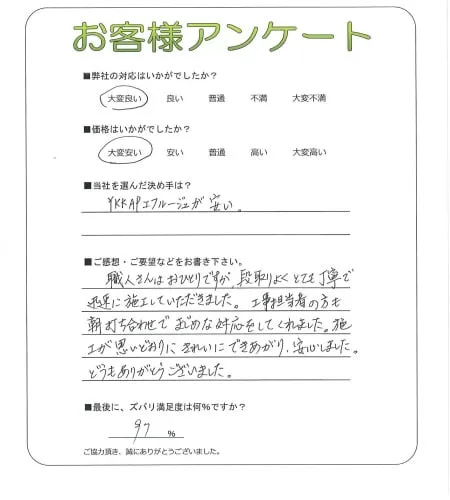 お客様アンケート
■弊社の対応はいかがでしたか？
大変良い 良い 普通 不満 大変不満
■価格はいかがでしたか？
大変安い 安い 普通 高い 大変高い
■当社を選んだ決め手は？
YKKAPエフルージュが安い。
■ご感想・ご要望などをお書き下さい。
職人さんはおひとりですが、段取りよくとても丁寧で
迅速に施工していただきました。工事担当者の方も
朝打ち合わせでまじめな対応をしてくれました。施
工が思いどおりにきれいにできあがり、安心しました。
どうもありがとうございました。
■最後に、ズバリ満足度は何％ですか？
97 ％
ご協力頂き、誠にありがとうございました。